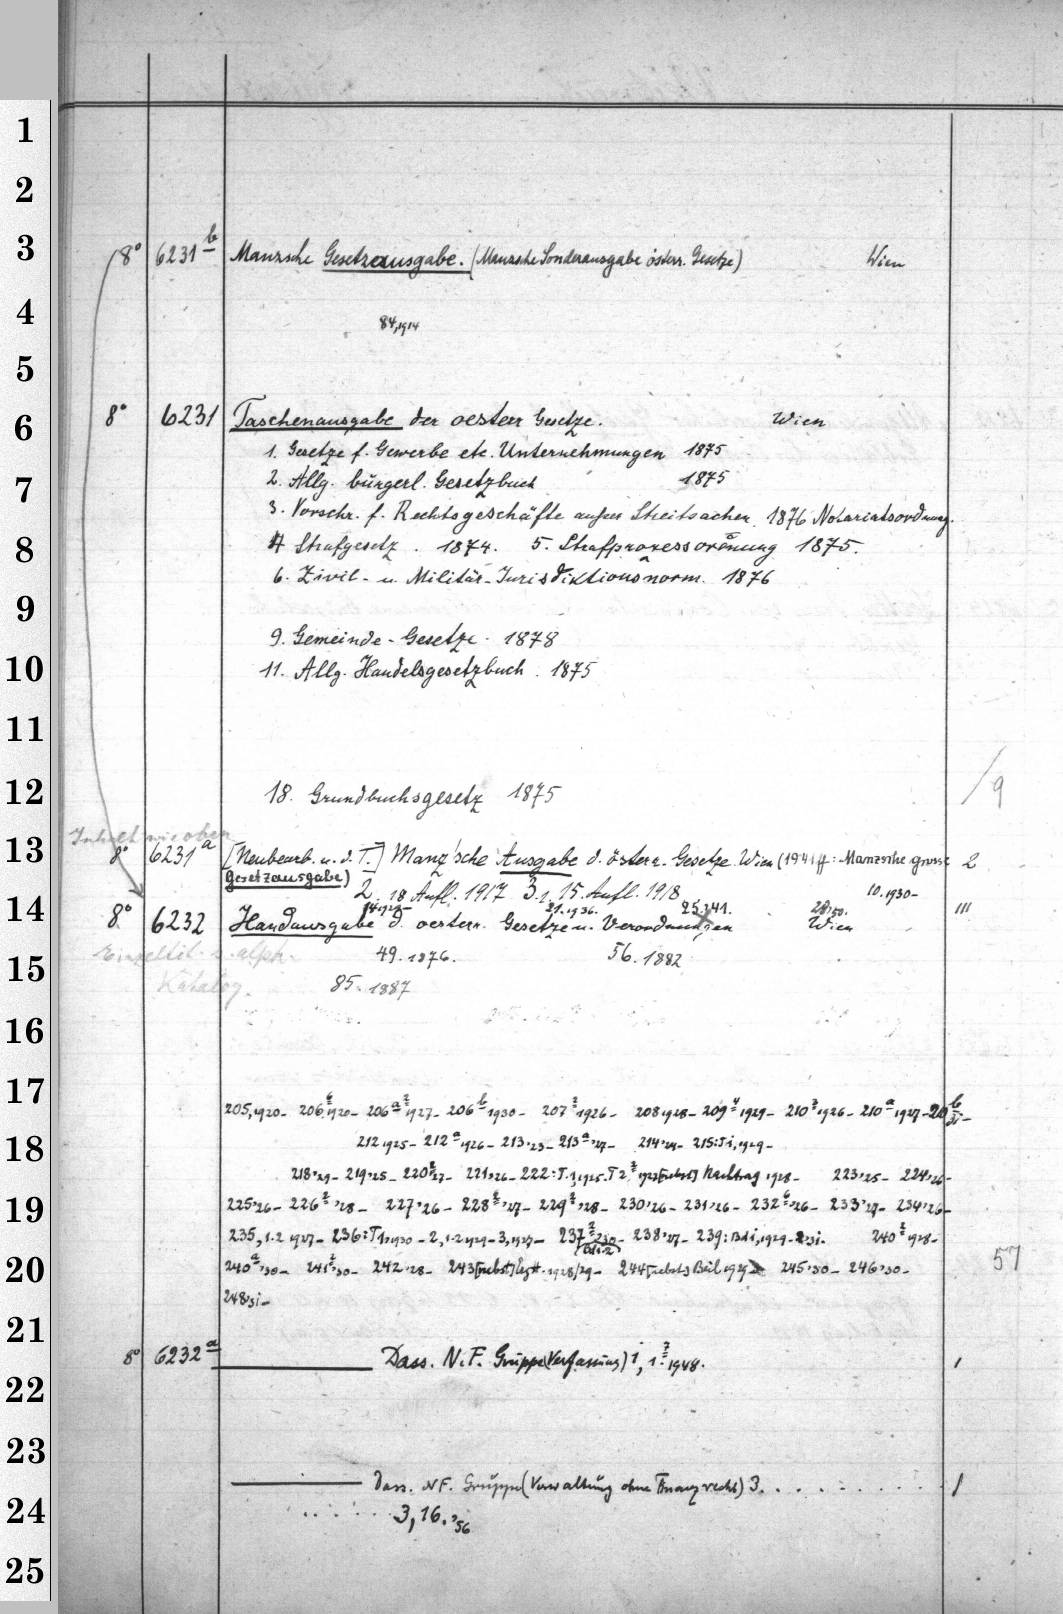 8° 6231 b Manzsche Gesetzausgabe. (Manzsche Sonderausgabe österr. Gesetze) Wien
84,1914
8° 6231 Taschenausgabe der oesterr Gesetze. Wien
1. Gesetze f. Gewerbe etc. Unternehmungen 1875
2. Allg. bürgerl. Gesetzbuch 1875
3. Vorschr. f. Rechtsgeschäfte ausser Streitsachen 1876 Notariatsordnung.
4 Strafgesetz . 1874. 5. Strafprozessordnung 1875.
6. Zivil- u. Militär-Jurisdiktionsnorm. 1876
9. Gemeinde-Gesetze. 1878
11. Allg. Handelsgesetzbuch. 1875
18. Grundbuchsgesetz 1875 /9
Inhalt wie oben
8° 6231 a [Neubearb. u. d. T.] Manz'sche Ausgabe d. österr. Gesetze Wien (1941 ff: Manzsche grosse 2
Gesetzausgabe) 2. 18 Aufl. 1917 3. 15. Aufl. 1918 10.1930-
21.1936. 25:41. 28,50.
8° 6232 Handausgabe d. oesterr. Gesetze u. Verordnungen Wien III
Einzeltit. s. alph. 49. 1876. 56. 1882
Katalog. 85. 1887
205,1920- 206 1920- 206 a 2 1927- 206 b 1930- 207 2 1926- 208 1928- 209 4 1929- 210 2 1926- 210 a 1927- 210 b 31-
212 1925- 212 a 1926- 213'23- 213 a '27- 214'24- 215: 1929-
218'29- 219'25- 220 2 '27- 221'26- 222: T. 1,1925. T 2 2 1927 [nebst] Nachtrag 1928- 223'25- 224'26-
225'26- 226 2 '28- 227'26- 228 2 '27- 229 2 '28- 230'26- 231'26- 232 '26- 233'27- 234'26-
235, 1.2 1927- 236: T 1,1930- 2, 1.2 1929- 3,1927- 237 2 1930- 238'27- 239: Bd 1, 1929- 2'31. 240 2 1928-
(Bd 1.2)
240 a '30- 241 2 '30- 242'28- 243 [nebst] Erg.H. 1928/29- 244 [nebst] Beil 1929 245'30- 246'30- 57
248'31-
8° 6232 a Dass. N.F. Gruppe (Verfassung) 1, 1 2 1948. 1
Dass. NF. Gruppe (Verwaltung ohne Finanzrecht) 3. 1
3, 16.'56